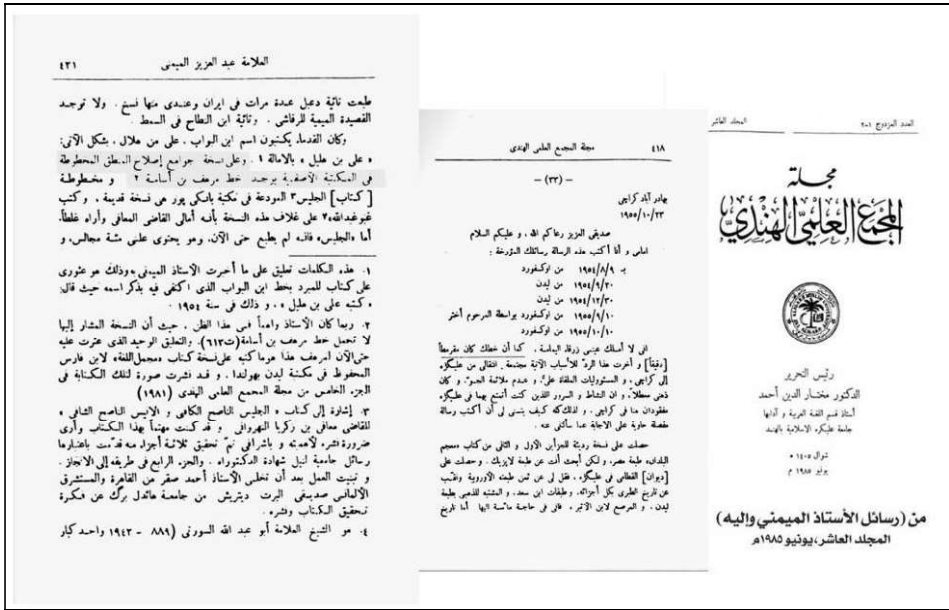 العدد المزدوج ١-٢
المجلد العاشر
مجلة
المجمع العلمي الهندي
رئيس التحرير
الدكتور مختار الدين أحمد
أستاذ قسم اللغة العربية و آدابها
جامعة عليكره الاسلامية بالهند
شوال ١٤٠٥ ه
يونيو ١٩٨٥ م
من (رسائل الأستاذ الميمني وإليه)
المجلد العاشر، يونيو ١٩٨٥م
٤١٨
مجلة المجمع العلمي الهندى
– (٣٣) –
بهادر آباد كراچى
١٩٥٥/١٠/٢٣
صديقى العزيز رعاكم الله ، و عليكم السلام
امامى و أنا أكتب هذه الرسالة رسائلك المؤرخة :
بـ ١٩٥٤/٨/٩ من اوكسفورد
١٩٥٤/٩/٢٠ من ليدن
١٩٥٤/١٢/٣٠ من ليدن
١٩٥٥/٩/١٠ من اوكسفورد بواسطة المرحوم أختر
١٩٥٥/١٠/١٠ من اوكسفورد
انى لا أملك عينى زرقاء اليمامة . كما أن خطك كان مقرمطاً
[دقيقاً] و أخرت هذا الرد للأسباب الآتية مجتمعة . انتقالى من عليكره
إلى كراچى ، و المسئوليات الملقاة علىّ، و عدم ملائمة الجو . و كان
ذهنى معطلاً، و ان النشاط و السرور اللذين كنت أتمتع بهما فى عليكره
مفقودان هنا فى كراچى . و لذلك كيف يتسنى لى أن أكتب رسالة
مفصلة حاوية على الاجابة عما سألتى عنه .
حصلت على نسخة رديئة للجزأين الاول و الثانى من كتاب «معجم
البلدان» طبعة مصر، و لكن أبحث أنت عن طبعة لايزيك . وحصلت على
[ديوان] القطامى فى عليكره . فقل لى عن ثمن طبعته الأوروبية ونقب
عن تاريخ الطبرى بكل أجزائه، و طبقات ابن سعد، و المشتبه للذهبى بطبعة
ليدن . و المرصع لابن الاثير . فانى فى حاجة ماسة اليها أما تاريخ
العلامة عبد العزيز الميمنى
٤٣١
طبعت تائية دعبل عدة مرات فى ايران وعندى منها نسخ . ولا توجد
القصيدة الميمية للرقاشى . وتائية ابن النطاح فى السمط .
وكان القدماء يكتبون اسم ابن البواب . على بن هلال . بشكل الآتى:
« على بن هليل » بالامالة ١ . وعلى نسخة جوامع إصلاح المنطق المخطوطة
فى المكتبة الآصفية يوجد خط مرهف بن أسامة ٢ و مخطوطة
[كتاب] الجليس٣ المودعة فى مكتبة بانكى پور هى نسخة قديمة . و كتب
غيرعبدالله٤ على غلاف هذه النسخة بأنه أمالى القاضى المعافى وأراه غلطاً.
أما «الجليس» فانه لم يطبع حتى الآن. وهو يحتوى على مئة مجالس، و
١. هذه الكلمات تعليق على ما أخبرت الأستاذ الميمنى به وذلك هو عثورى
على كتاب للمبرد بخط ابن البواب الذى اكتفى فيه بذكر اسمه حيث قال:
« كتبه على بن هليل » . و ذلك فى سنة ١٩٥٤ .
٢. ربما كان الأستاذ واهماً فى هذا الظن . حيث أن النسخة المشار إليها
لا تحمل خط مرهف بن أسامة(ت٦١٣). والتعليق الوحيد الذى عثرت عليه
حتى الآن لمرهف هذا هو ما كتبه على نسخة كتاب «مجمل اللغة» لابن فارس
المحفوظ فى مكتبة ليدن بهولندا . و قد نشرت صورة لتلك الكتابة فى
الجزء الخامس من مجلة المجمع العلمى الهندى (١٩٨١)
٣. إشارة إلى كتاب « الجليس الناصح الكافى و الانيس الناصح الشافى »
للقاضى معافى بن زكريا النهروانى . و قد كنت مهتماً بهذا الكتاب وأرى
ضرورة نشره لأهميته و باشرافى تم تحقيق ثلاثة أجزاء منه قدمت باعتبارها
رسائل جامعية لنيل شهادة الدكتوراه . والجزء الرابع فى طريقه إلى الانجاز .
و تبنيت العمل بعد أن تخلى الأستاذ أحمد صقر من القاهرة والمستشرق
الألمانى صديقى البرت ديتريش من جامعة هائدل برگ عن فكرة
تحقيق الكتاب ونشره .
٤. هو الشيخ العلامة أبو عبد الله السورتى (٨٨٩ – ١٩٤٢) واحد كبار